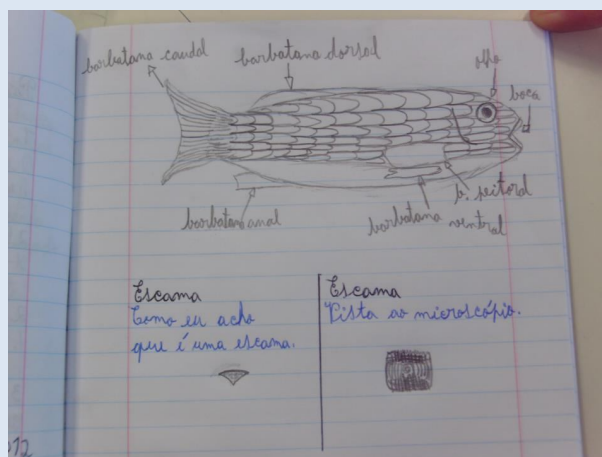 barbatana caudal
barbatana dorsal
olho
boca
b. peitoral
barbatana ventral
barbatana anal
Escama
Como eu acho
que é uma escama.
Escama
Vista ao microscópio.